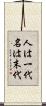 人は一代
名は末代